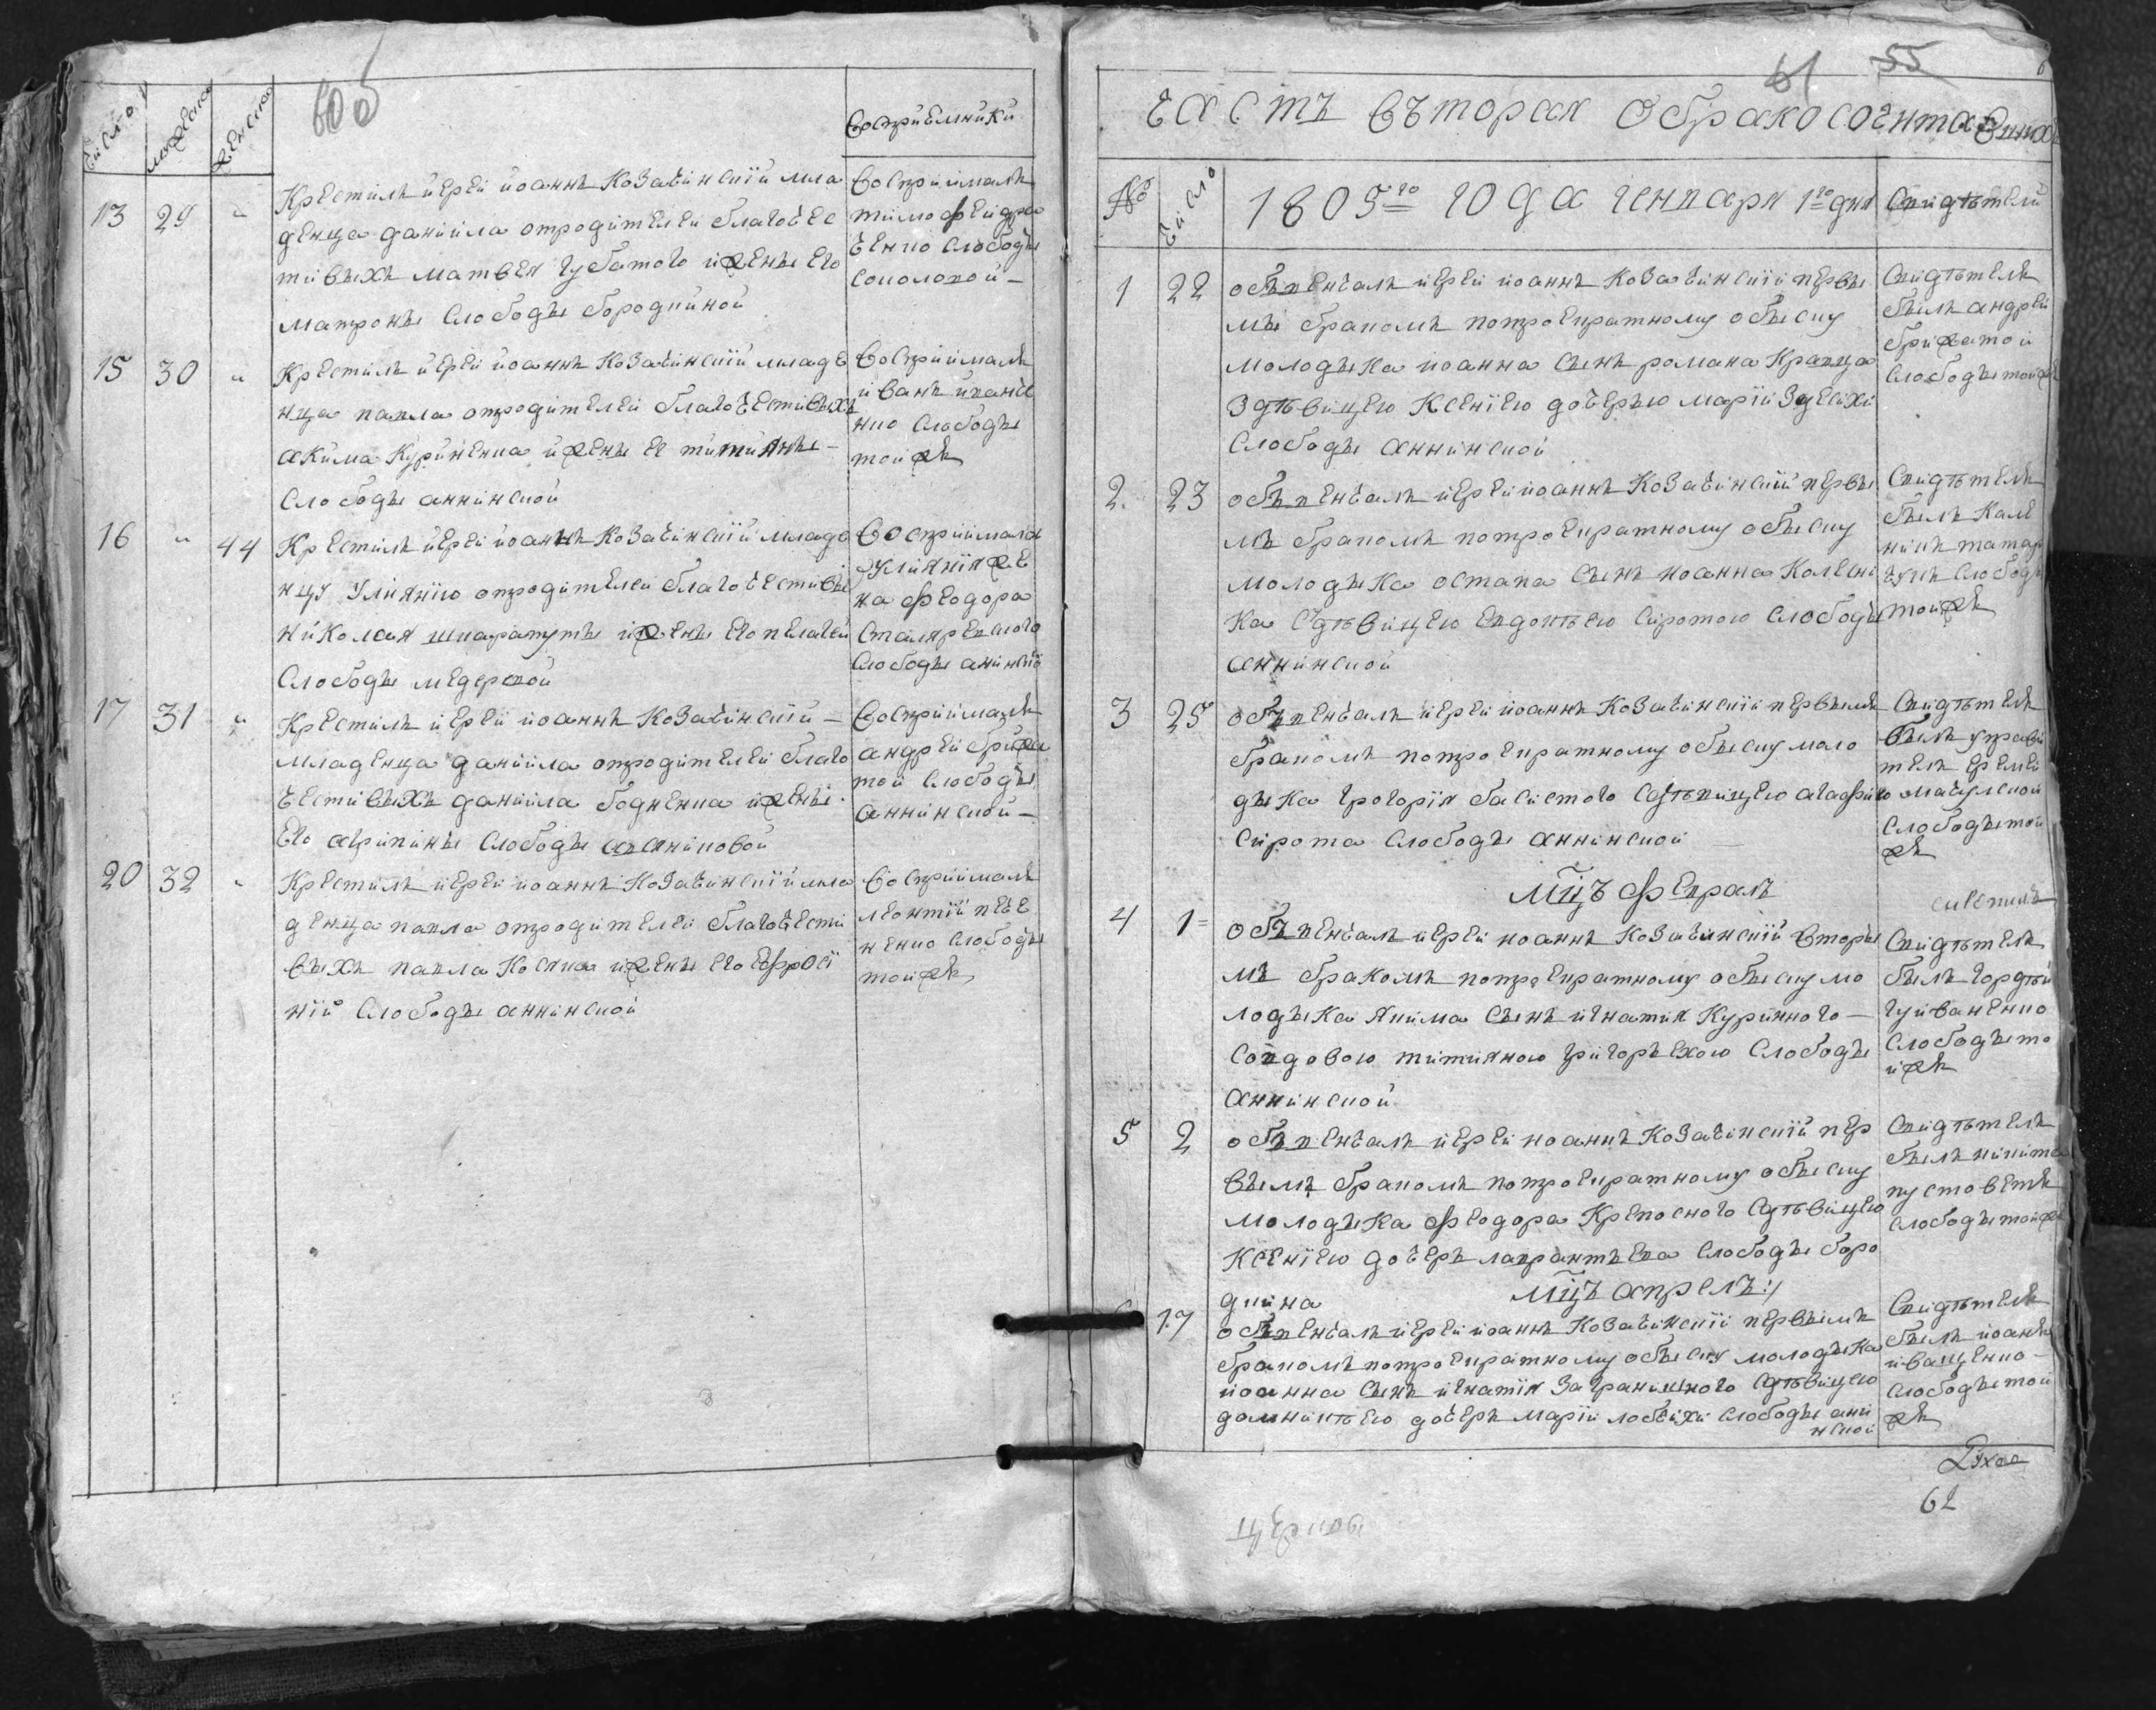 60об
Число
мужска
женска
Восприемники
13 29 "
Крестилъ иерей иоаннъ Козачинский мла
денца даниила отродителей благочес
тивыхъ матвея губатого ижены его
матроны слободы бородкиной
Восприималъ
тимофей дра
ченко слободы
соколовой –
15 30 "
Крестилъ иерей иоаннъ Козачинский младе
нца павла отродителей благочестивыхъ
акима Куриненка ижены ее титияны –
слободы аннинской
Восприималъ
иванъ иване
нко слободы
тойжъ
16 " 44
Крестилъ иерей иоаннъ Козачинский младе
нцу улиянию отродителей благочестивы
николая шкарапуты ижены его пелагеи
слободы медервой
Восприимала
улияния же
на феодора
столяревского
слободы анинский
17 31 "
Крестилъ иерей иоаннъ Козачинский –
младенца даниила отродителей благо
честивыхъ даниила бодненка ижены
его агрипины слободы аванниковой
Восприималъ
андрей брижа
той слободы
аннинской –
20 32 "
Крестилъ иерей иоаннъ Козачинский мла
денца павла отродителей благочести
выхъ павла Косяка ижены его ефроси
нии слободы аннинской
Восприималъ
леонтий пече
ненко слободы
тойжъ
61 55
Часть вторая о бракосочитавшихся
№
Число
1805го года генваря 1го дня
Свидетели
1 22
обвенчалъ иерей иоаннъ Козачинский первы
мъ бракомъ потроекратному обыску
молодыка иоанна сынъ романа Кравца
здевицею Ксениею дочерью марии Здесихи
слободы аннинской
Свидетель
былъ андрей
брижатой
слободы тойжъ
2. 23
обвенчалъ иерей иоаннъ Козачинский первы
мъ бракомъ потроекратному обыску
молодыка остапа сынъ иоанна Колесни
ка сдевицею евдокиею сиротою слободы
аннинской
Свидетель
былъ Кале
никъ татар
чукъ слободы
тойжъ
3 25
обвенчалъ иерей иоаннъ Козачинский первымъ
бракомъ потроекратному обыску моло
дыка грегория басистого сдевицею агафию
сирота слободы аннинской
Свидетель
былъ управи
тель еремей
мацулской
слободы той
жъ
мцъ февраль
4 1
обвенчалъ иерей иоаннъ Козачинский вторы
мъ бракомъ потроекратному обыску мо
лодыка якима сынъ игнатия Куринного –
совдовою титияною григорьевою слободы
аннинской
Свидетель
былъ гордей
гуйваненко
слободы то
йжъ
5 2
обвенчалъ иерей иоаннъ Козачинский пер
вымъ бракомъ потроекратному обыску
молодыка феодора Крепосного сдевицею
Ксениею дочеръ лаврантьева слободы боро
дкина
Свидетель
былъ никита
пустоветъ
слободы тойжъ
мцъ апрель
17
обвенчалъ иерей иоаннъ Козачинский первымъ
бракомъ потроекратному обыску молодыка
иоанна сынъ игнатия Заграничного сдевицею
домникиею дочеръ марии лобчихи слободы ани
нской
Свидетель
былъ иоаннъ
иващенко –
слободы той
жъ
62
церкви